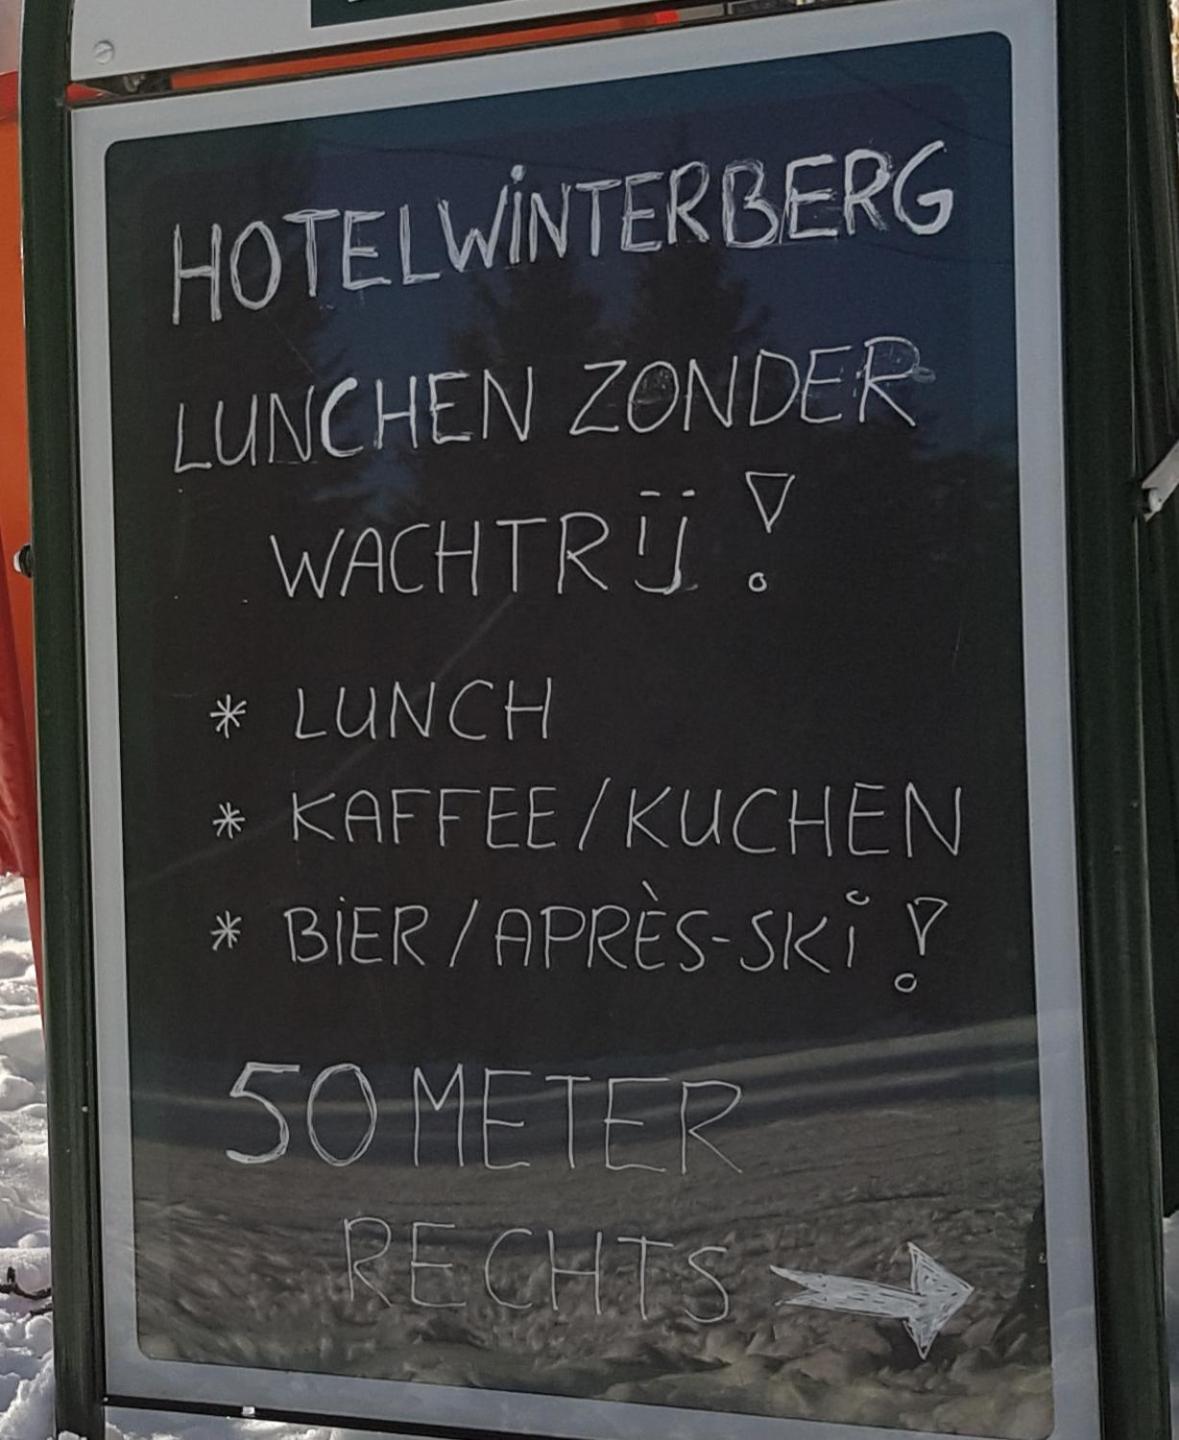 HOTEL WINTERBERG
LUNCHEN ZONDER
WACHTRIJ !
* LUNCH
* KAFFEE/KUCHEN
* BIER/APRÈS-SKI !
50 METER
RECHTS →